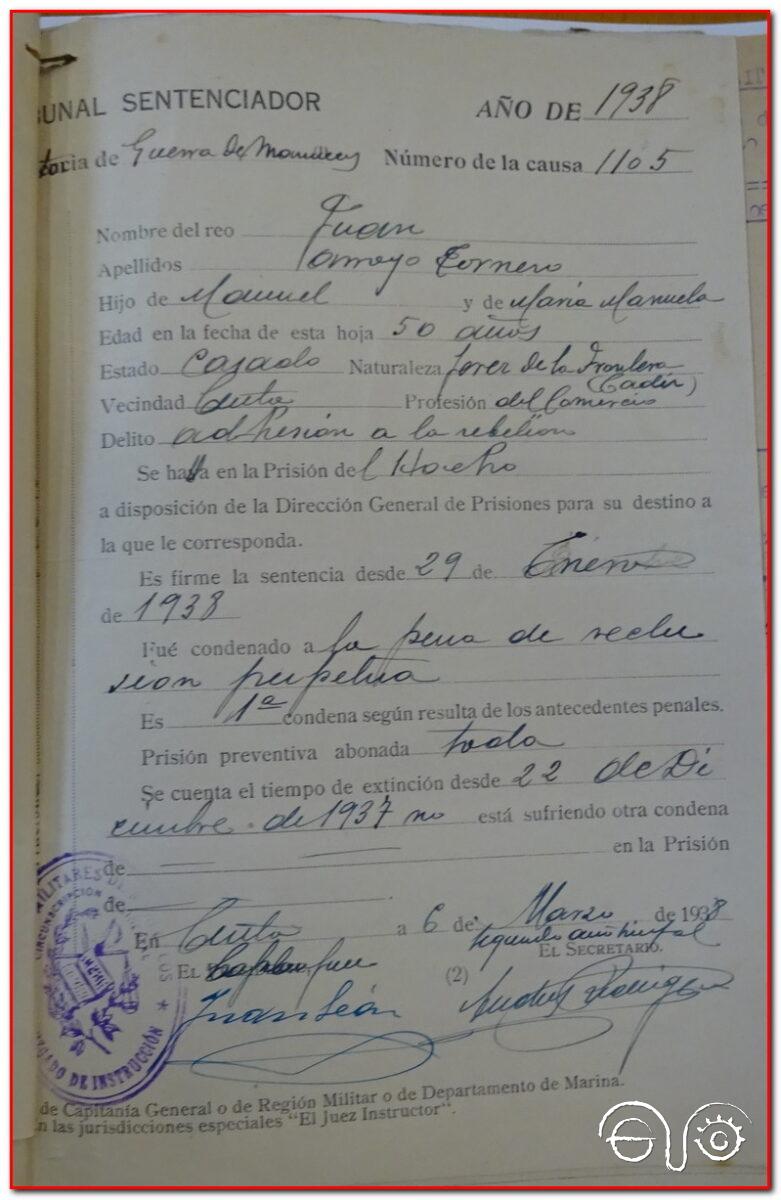 BUNAL SENTENCIADOR
AÑO DE 1938
toria de Guerra de Número de la causa 1105
Nombre del reo Juan
Apellidos Arroyo Tornero
Hijo de Manuel y de María Manuela
Edad en la fecha de esta hoja 50 años
Estado Casado Naturaleza Jerez de la Frontera
(Cadiz)
Vecindad Ceuta Profesión del Comercio
Delito adhesión a la rebelión
Se halla en la Prisión del Hacho
a disposición de la Dirección General de Prisiones para su destino a
la que le corresponda.
Es firme la sentencia desde 29 de Enero
de 1938
Fué condenado a la pena de reclu
sion perpetua
Es 1ª condena según resulta de los antecedentes penales.
Prisión preventiva abonada toda
Se cuenta el tiempo de extinción desde 22 de Di
ciembre de 1937 no está sufriendo otra condena
en la Prisión
de
de
En Ceuta a 6 de Marzo de 1938
EL (2) EL SECRETARIO.
Juan León
de Capitanía General o de Región Militar o de Departamento de Marina.
n las jurisdicciones especiales "El Juez Instructor".
MILITARES DE
CIRCUNSCRIPCION
GADO DE INSTRUCCIÓN